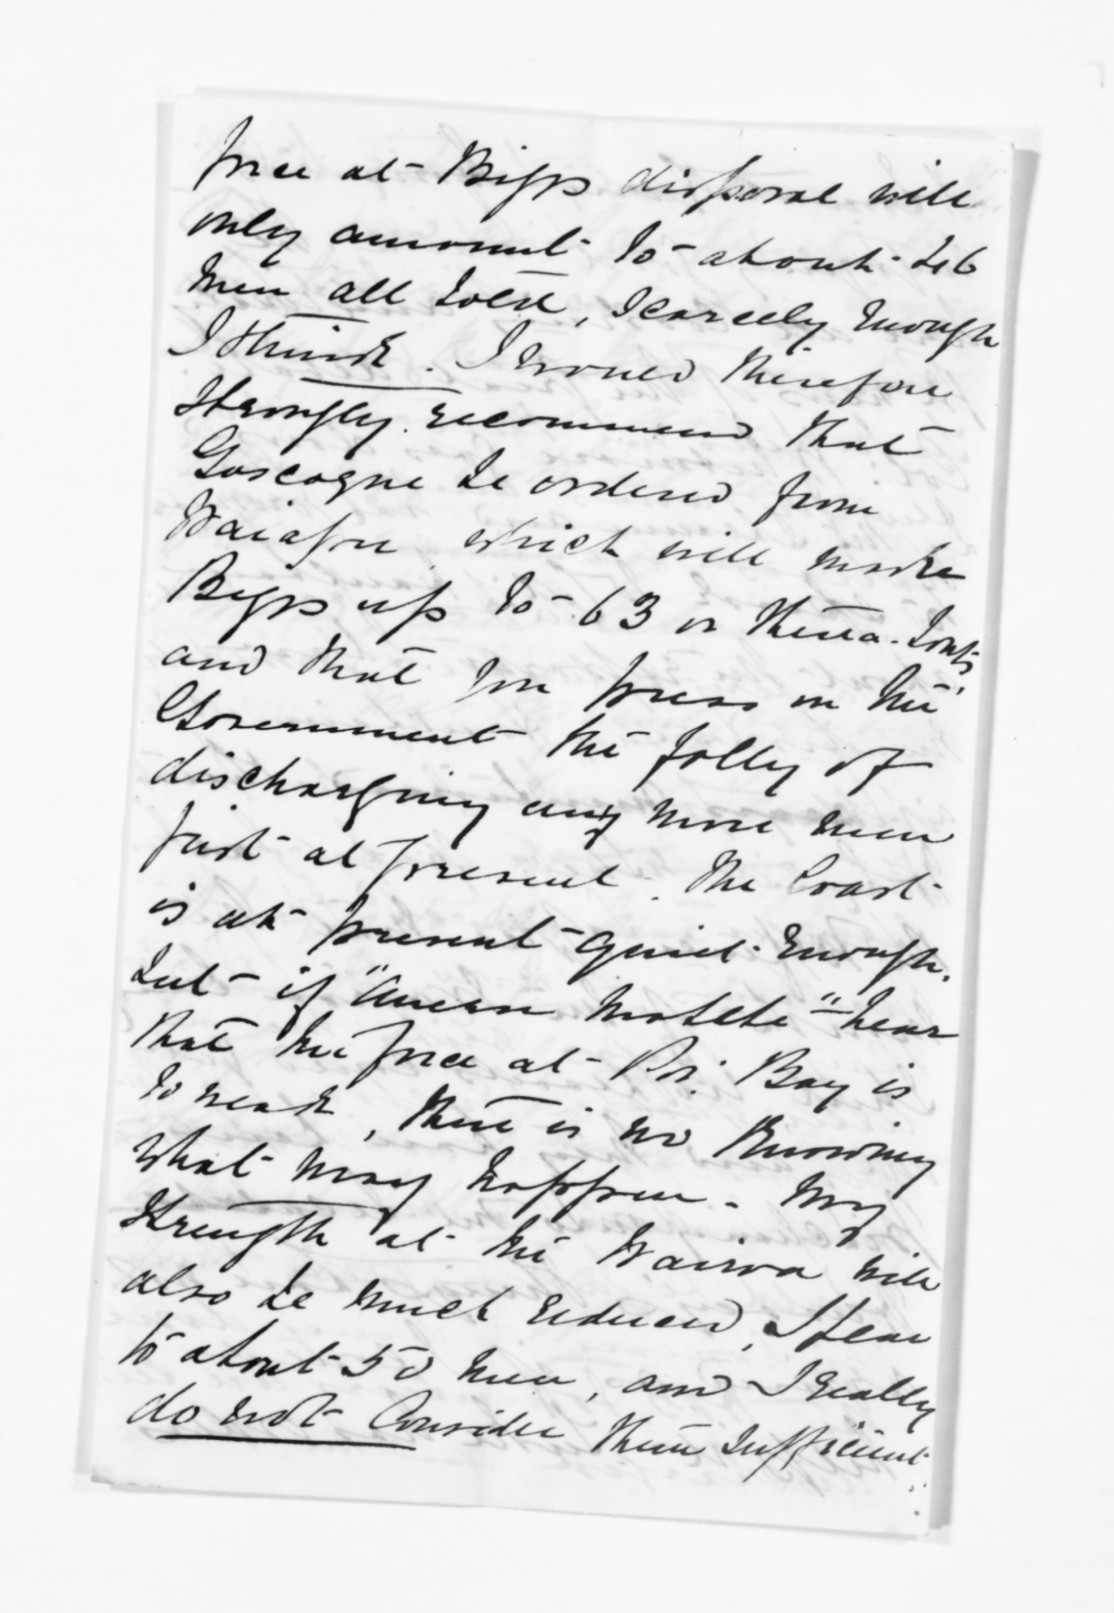 force at Biggs disposal will
only amount to about 46
men all told, scarcely enough
I think. I would therefore
strongly recommend that
Gascogne be ordered from
Waiapu which will make
Biggs up to 63 or thereabouts
and that you press on the
Government the folly of
discharging any more men
just at present. The Coast
is at present quiet enough,
but if "Anaru Matete" hear
that the force at Po. Bay is
so weak, there is no knowing
what may happen. My
strength at the Wairoa will
also be much reduced, I fear
to about 50 men, and I really
do not consider them sufficient.